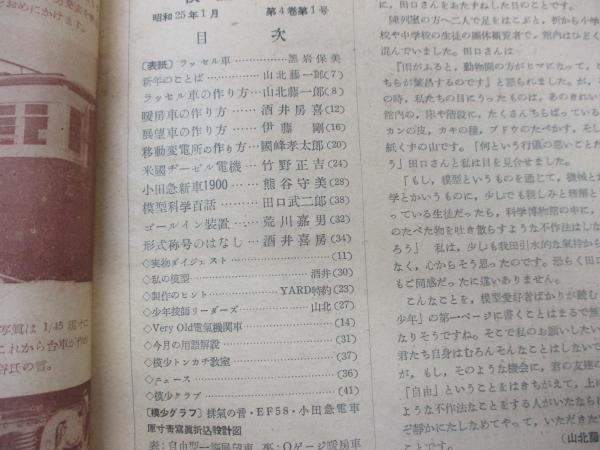 昭和25年1月　第4卷第1号
目　次
〔表紙〕ラッセル車…………黒岩保美
新年のことば……山北藤一郎(7)
ラッセル車の作り方……山北藤一郎(8)
暖房車の作り方……酒井房喜(12)
展望車の作り方……伊藤　剛(16)
移動変電所の作り方……國峰孝太郎(20)
米國ヂーゼル電機……竹野正吉(24)
小田急新車1900……熊谷守美(28)
模型科学百話……田口武二郎(38)
ゴールイン装置……荒川嘉男(32)
形式称号のはなし……酒井喜房(34)
◇実物ダイジェスト……(11)
◇私の模型……酒井(30)
◇製作のヒント……YARD特約(23)
◇少年技師リーダーズ……山北(27)
◇Very Old電氣機関車……(14)
◇今月の用語解説……(31)
◇模少トンカチ教室……(37)
◇ニュース……(36)
◇模少クラブ……(41)
〔模少グラフ〕排氣の音・EF58・小田急電車
原寸青寫眞折込設計図
表：自由型一等展望車　裏：Oゲージ暖房車
に、田口さんをおたずねした日のことです。
陳列室の方へ二人で足をはこぶと、折から小学
校や中学校の生徒の團体観覧者で、館内はひどく
混んでいました。田口さんは
『雨がふると、動物園の方がヒマになって、
ちらが繁昌するのです』と語られました。が、
の時、私たちの目にうつったものは、あのきれい
館内の、床や階段に、たくさんちらばっている
カンの皮、カキの種、ブドウのたべかす、そし
紙くずの山です。「何という行儀の悪いことだ
う」田口さんと私は目を見合せました。
「もし、模型というものを通じて、機械とか
学とかいうものに、少しでも親しみと理解と
っている生徒だったら、科学博物館の中に、
のたべた物を吐き散らすような不作法はしな
ろう」　私は、少しも我田引水的な氣持から
なく、心からそう思ったのです。恐らく田口
もご同感だったに違いありません。
こんなことを、模型愛好者ばかりが読む
少年」の第一ページに書くことはまるで無
なりそうですね。そこで私のお願いしたい
君たち自身はむろんそんなことはしないで
が、もし、そのような機会に、君の友達の
「自由」ということをはきちがえて、上に
ような不作法なことをする人がいたならば
ぞ静かにたしなめてやって、いただきたい
ことです。
(山北藤
おめにかけます。
写真は 1/45 原寸に
これから台車が作
谷氏の書。